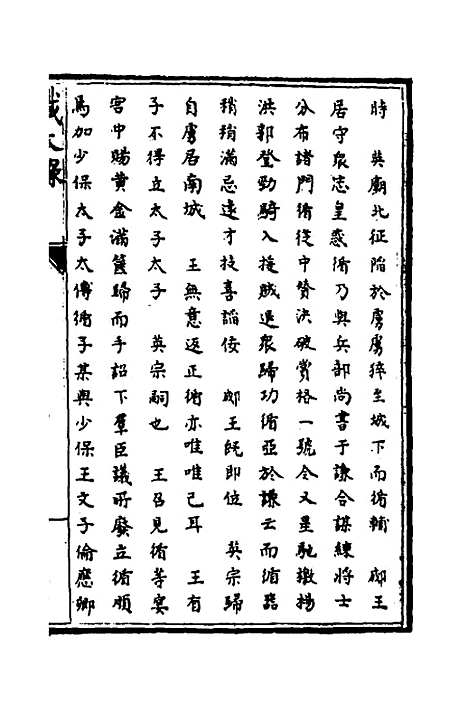 時　英廟北征陷於虜虜猝至城下而循輔　郕王
居守衆志皇惑循乃與兵部尚書于謙合謀練將士
分布諸門循從中贊決破賞格一號令又星馳檄楊
洪郭登勁騎入援賊退衆歸功循亞於謙云而循器
稍稍滿忌遠才技喜謟佞　郕王旣即位　英宗歸
自虜居南城　王無意返正循亦唯唯己耳　王有
子不得立太子太子　英宗嗣也　王召見循等宴
宫中賜黄金滿篋歸而手詔下羣臣議所廢立循順
焉加少保太子太傅循子某與少保王文子倫應鄉